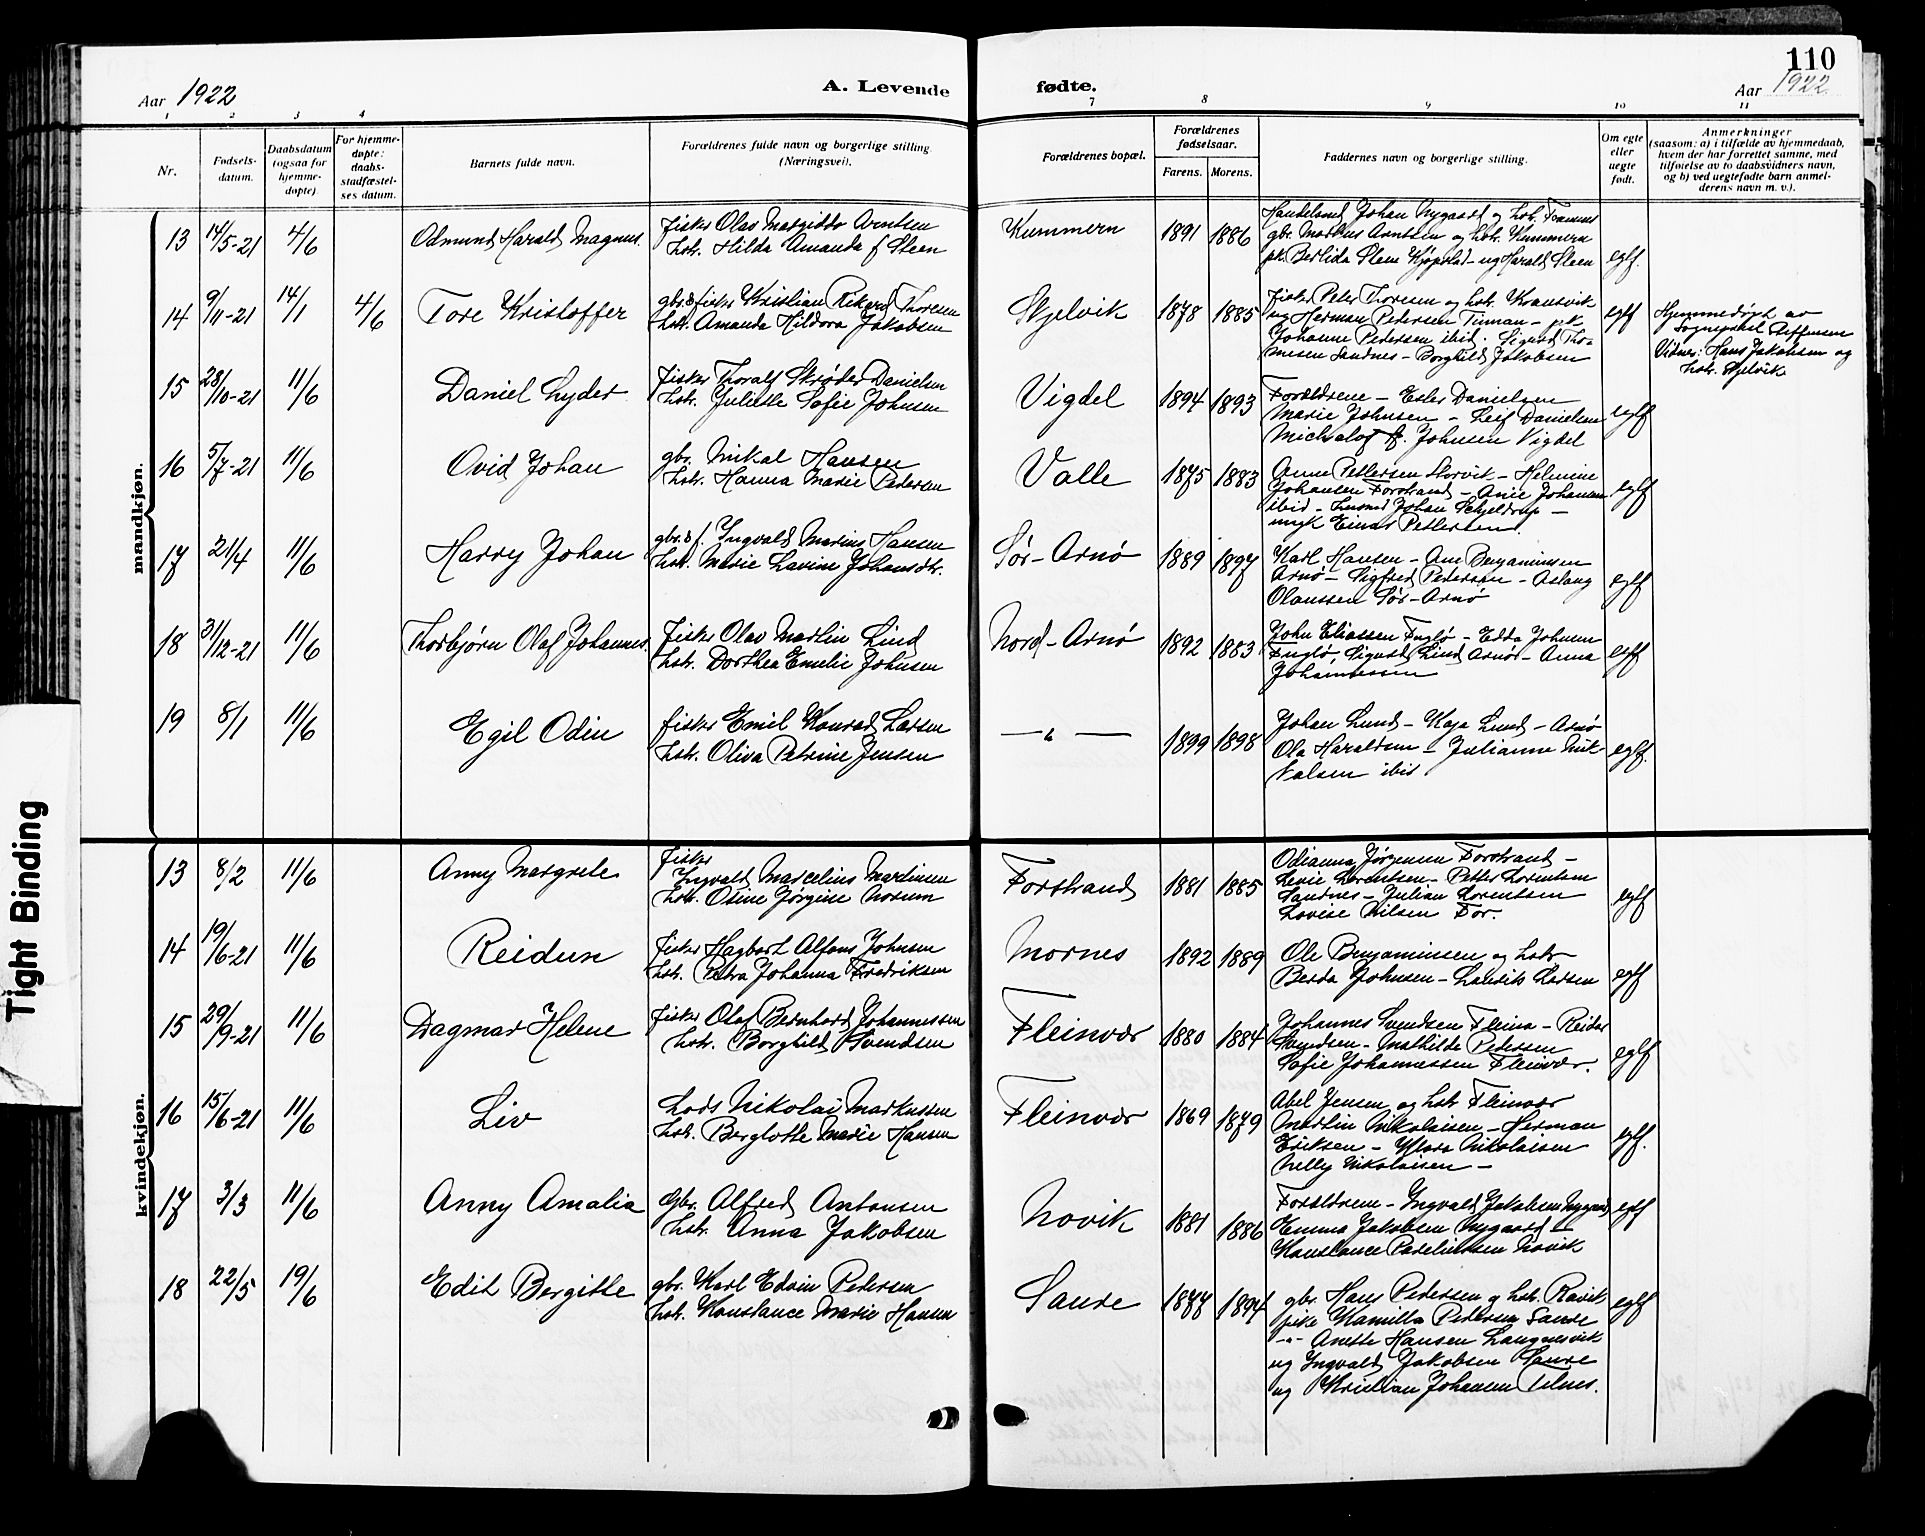 110
Aar 1922
A. Levende
fødte.
Aar 1922
1 2 3 4 7 8 9 10 11
Nr.
Fødsels-
datum.
Daabsdatum
(ogsaa for
hjemme-
døpte)
For hjemme-
døpte:
daabs-
stadfæstel-
ses datum.
Barnets fulde navn.
Forældrenes fulde navn og borgerlige stilling
(Næringsvei).
Forældrenes bopæl.
Forældrenes
fødselsaar.
Farens. Morens.
Faddernes navn og borgerlige stilling.
Om egte
eller
uegte
født.
Anmerkninger
(saasom: a) i tilfælde av hjemmedaab,
hvem der har forrettet samme, med
tilføielse av to daabsvidners navn,
og b) ved uegtefødte barn anmel-
derens navn m. v.).
mandkjøn.
13 14/5-21 4/6 Odmund Harald Magnus.
fisker Olav Margido Arntsen
hstr. Hilda Amanda f Steen
Kummern 1891 1886
Handelsmd Johan Nygaard og hstr.
gbr. Markus Arntsen og hstr. Kummern
pk. Berlida Steen Kjøpstad - ug Harald Steen
egtf.
14 9/11-21 14/1 4/6 Tore Kristoffer
gbr. & fisker Kristian Rikard Thoresen
hstr. Amanda Hildora Jakobsen
Skjelvik 1878 1885
fisker Peter Thoresen og hstr.
ug Herman Pedersen - pk
Johanne Pedersen ibid. Sigurd Tho-
mesen Sandnes - Borghild Jakobsen
egtf
Hjemmedøpt av
Sogneprest Steffensen
Vidner: Hans Jakobsen og
hstr. Skjelvik
15 28/10-21 11/6 Daniel Lyder
fisker Thoralf Skrøder Danielsen
hstr. Juliette Sofie Johnsen
Vigdel 1894 1893
Forældrene - Ester Danielsen
Marie Johnsen - Leif Danielsen
Johnsen Vigdel
egtf
16 5/7-21 11/6 Ovid Johan
gbr. Mikal Hansen
hstr. Hanna Marie Pedersen
Valle 1875 1883
Anne Pettersen Storvik - Helmine
Johansen Forstrand - Anie Johansen
ibid - Johan Schjeldrup -
ungk Einar Pettersen.
egtf
17 21/4 11/6 Harry Johan
gbr. & f. Ingvald Marius Hansen
hstr. Marie Lavine Johansdtr.
Sør-Arnø 1889 1897
Karl Hansen - Ane Benjaminsen
Arnø - Sigfred Pedersen - Aslaug
Olaussen Sør-Arnø
egtf
18 31/12-21 11/6 Thorbjørn Olaf Johannes.
fisker Olav Martin Lind
hstr. Dorthea Emelie Johnsen
Nord-Arnø 1892 1883
John Eliassen Fuglø - Edda Johnsen
Fuglø, Sigurd Lind Arnø - Anna
Johannessen
egtf
19 8/1 11/6 Egil Odin
fisker Emil Konrad Larsen
hstr. Oliva Petrine Jensen
— " — 1899 1898
Johan Lund - Kaja Lund - Arnø
Ola Haraldsen - Julianne Mik-
kalsen ibid
egtf.
kvindekjøn.
13 8/2 11/6 Anny Margrete
fisker
Ingvald Marcelius Martinsen
hstr. Otine Jørgine Norum
Forstrand 1881 1885
Odianna Jørgensen Forstrand -
Levie Lorentsen - Petter Lorentsen
Sandnes - Julian Lorentsen
Lovise Nilsen For.
egtf
14 19/6-21 11/6 Reidun
fisker Hagbart Alfons Johnsen
hstr. Petra Johanna Fredriksen
Mornes 1892 1889
Ole Benjaminsen og hstr
Berda Johnsen - Larsen
egtf
15 29/9-21 11/6 Dagmar Helene
fisker Olaf Bernhard Johannessen
hstr. Borghild Svendsen
Fleinvær 1880 1884
Johannes Svendsen Fleina - Reidar
Svendsen - Mathilde Pedersen
Sofie Johannessen Fleinvær.
egtf
16 15/6-21 11/6 Liv
Lods Nikolai Markussen
hstr. Berglotte Marie Hansen
Fleinvær 1869 1879
Abel Jensen og hstr. Fleinvær
Martin Nikolaisen - Herman
Eriksen - Nikolaisen
Nelly Nikolaisen -
egtf.
17 3/3 11/6 Anny Amalia
Gbr. Alfred Antonsen
hstr. Anna Jakobsen
Novik 1881 1886
Forældrene - Ingvald Jakobsen Nygaard
Emma Jakobsen Nygaard -
Konstance Novik
egtf
18 22/5 19/6 Edit Bergitte
gbr. Karl Edvin Pedersen
hstr. Konstance Marie Hansen
Saure 1877 1894
gbr. Hans Pedersen og hstr. Ravik
pike Kamilla Pedersen Saure
-"- Anette Hansen Langnesvik
ug Ingvald Jakobsen Saure
ug Kristian Johansen Telnes.
egtf
Tight Binding